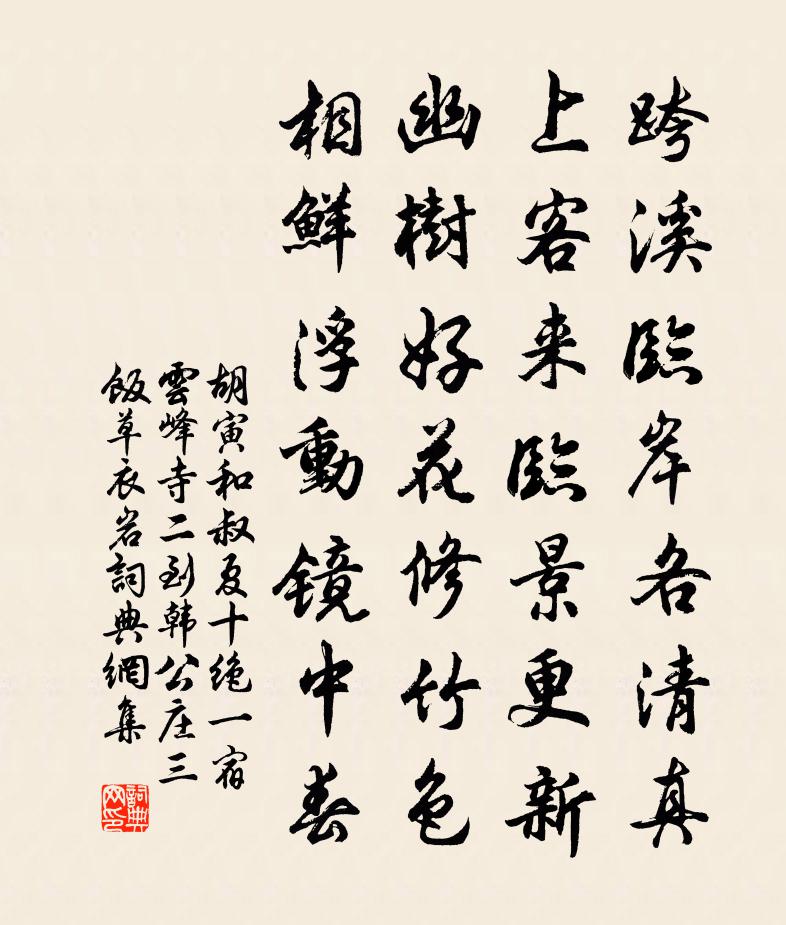 跨溪臨岸各清真
上客来臨景更新
幽樹好花修竹色
相鮮浮動镜中春
胡寅和叔夏十绝一宿
雲峰寺二到韩公庄三
飯草衣岩詞典網集
詞典网印